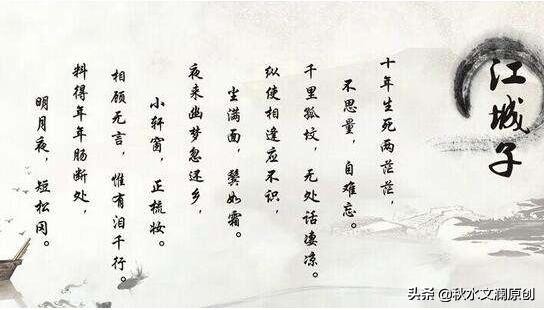 江城子
十年生死两茫茫，
不思量，自难忘。
千里孤坟，无处话凄凉。
纵使相逢应不识，
尘满面，鬓如霜。
夜来幽梦忽还乡，
小轩窗，正梳妆。
相顾无言，惟有泪千行。
料得年年肠断处，
明月夜，短松冈。
头条 @秋水文澜原创